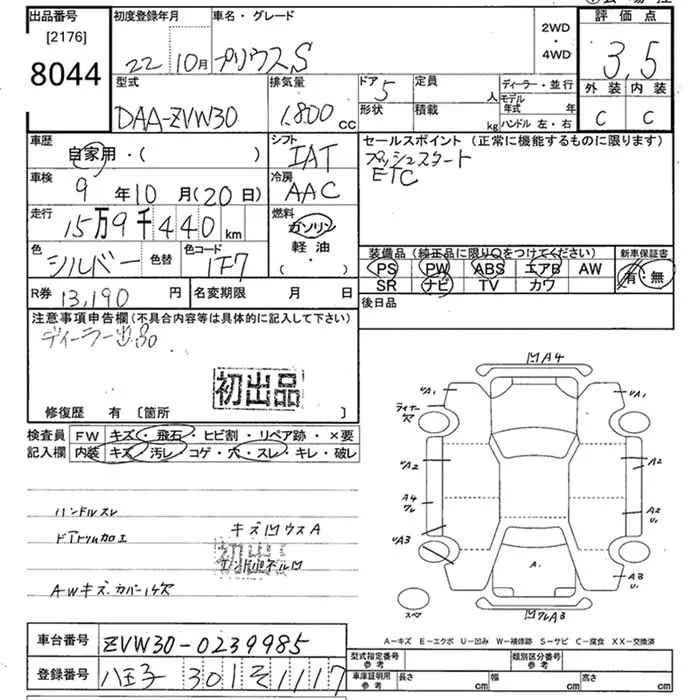 出品番号 初度登録年月 車名・グレード 2WD・4WD 評価点
[2176]
8044 22 10月 プリウス S 3.5
型式 排気量 ドア 5 定員 人 ディーラー・並行
DAA-ZVW30 1,800 cc 形状 積載 kg モデル年式 年 外装 内装
ハンドル 左・右 C C
車歴 シフト セールスポイント (正常に機能するものに限ります)
自家用・( ) IAT プッシュスタート
車検 冷房 ETC
9年10月(20日) AAC
走行 燃料
15万9千440km ガソリン
軽油
( ・ )
色 シルバー 色替 色コード 1F7
装備品 (純正品に限り○をつけてください) 新車保証書
PS PW ABS エアB AW 有・無
SR ナビ TV カワ
R券 13,190円 名変期限 月 日 後日品
注意事項申告欄(不具合内容等は具体的に記入して下さい)
初出品
修復歴 有 [箇所 ]
検査員 FW キズ・飛石・ヒビ割・リペア跡・×要
記入欄 内装 キズ・汚レ・コゲ・穴・スレ・キレ・破レ
ハンドルスレ
キズ凹ウスA
初出
AWキズ.カバーハケ欠
凹A4
A1
A1
A2
A2
A4
A2
A3
A.
A3
スペア
凹ワレA3
A-キズ E-エクボ U-凹み W-補修跡 S-サビ C-腐食 XX-交換済
車台番号 ZVW30-0239985
登録番号 八王子 301 そ 1117
型式指定番号 参考 類別区分番号 参考
車庫証明用 参考 長さ cm 幅 cm 高さ cm